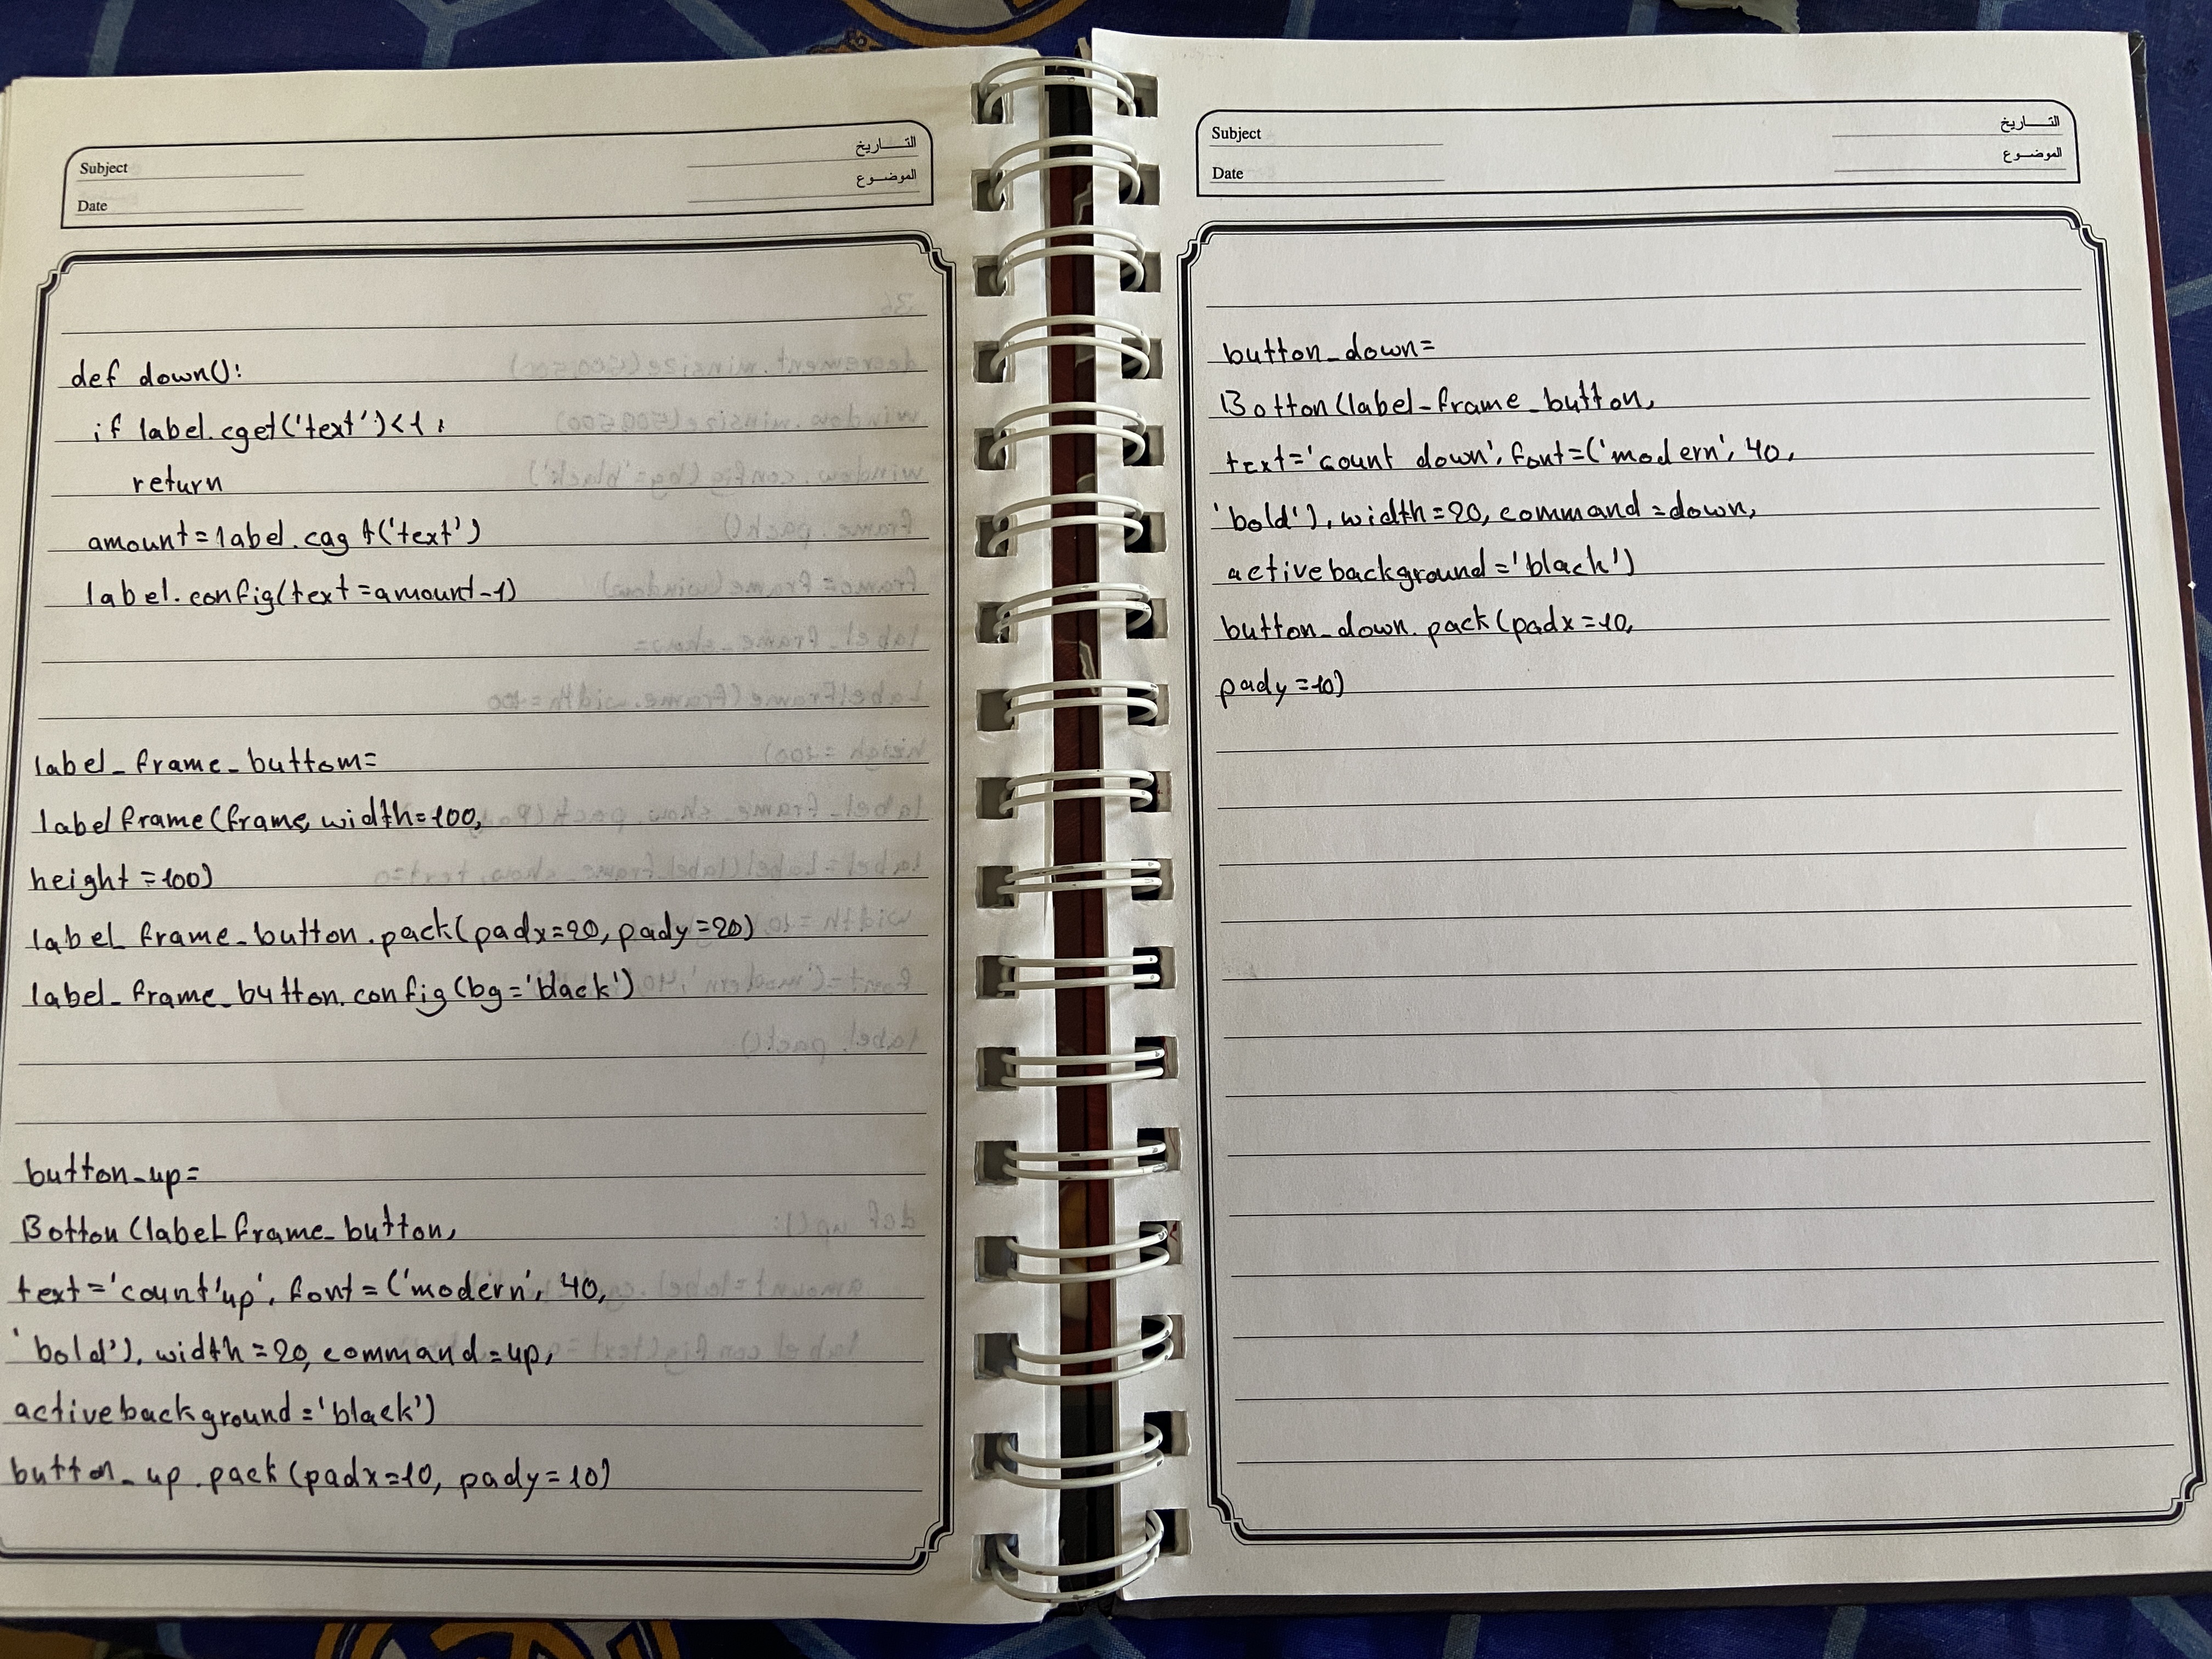 Subject
التـــاريخ
Date
الموضـــوع
def down():
if label.cget('text')<1:
return
amount=label.cag t('text')
label.config(text=amount-1)
label_frame_buttom=
labelframe(frame,width=100,
height=100)
label_frame_button.pack(padx=20,pady=20)
label_frame_button.config(bg='black')
button_up=
Botton(label frame_button,
text='count'up', font=('modern', 40,
'bold'), width=20, command=up,
activebackground='black')
button_up.pack(padx=10, pady=10)
Subject
التـــاريخ
Date
الموضـــوع
button_down=
Botton(label_frame_button,
text='count down', font=('modern', 40,
'bold'), width=20, command=down,
activebackground='black')
button_down.pack(padx=10,
pady=10)